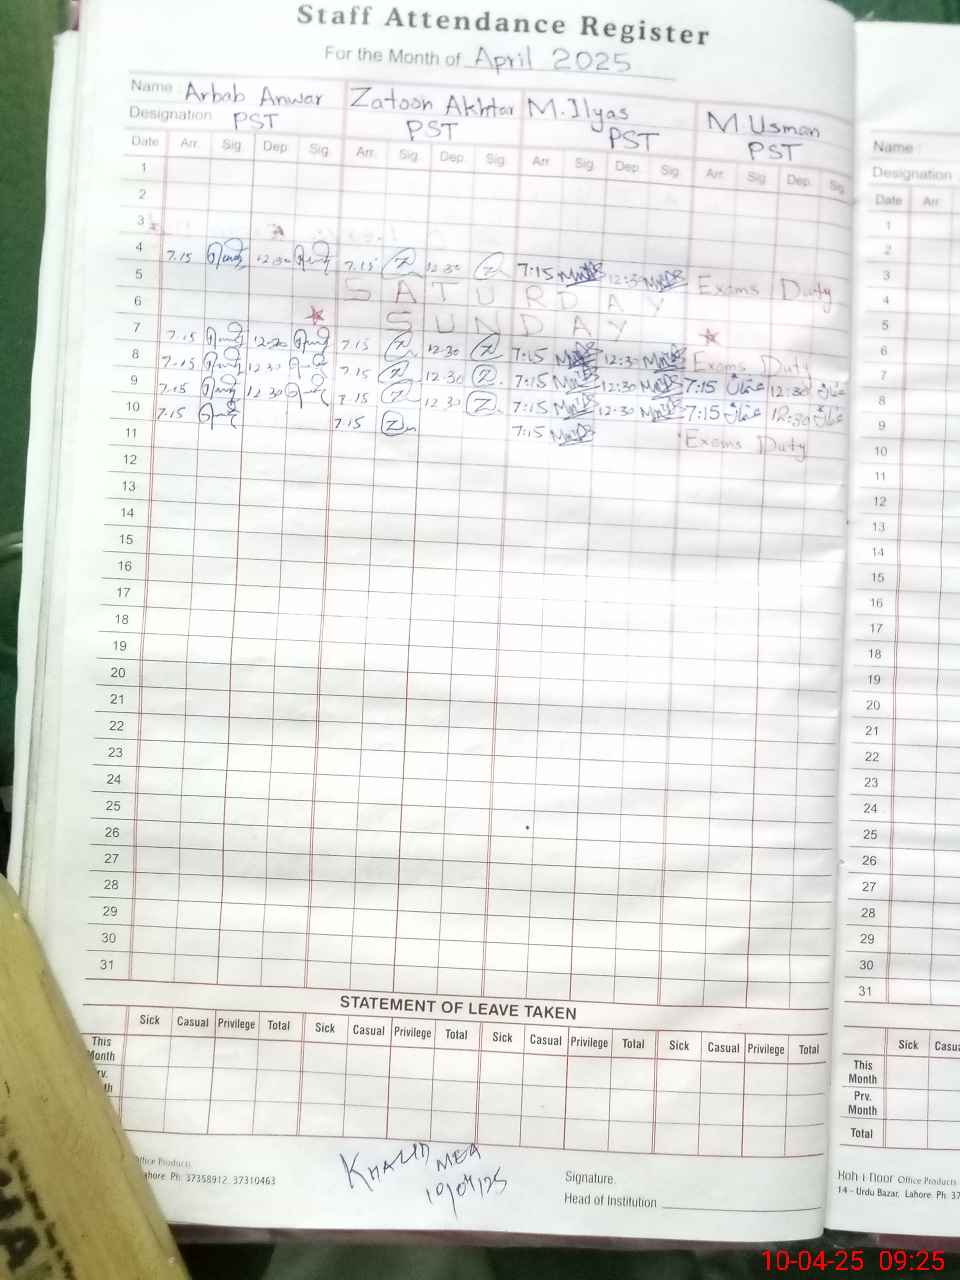 Staff Attendance Register
For the Month of April 2025
Name Arbab Anwar Zatoon Akhtar M. Ilyas M. Usman
Designation PST PST PST PST
Date Arr. Sig. Dep. Sig. Arr. Sig. Dep. Sig. Arr. Sig. Dep. Sig. Arr. Sig. Dep. Sig.
1
2
3
4 7.15 12.30 7.15 12.30 7:15 12:30 Exams Duty
5 SATURDAY
6 SUNDAY
7 7.15 12.30 7.15 12.30 7:15 12:30 Exams Duty
8 7.15 12 30 7.15 12.30 7:15 12:30 7:15 عثمان 12:30 عثمان
9 7.15 12 30 7.15 12.30 7:15 12:30 7:15 عثمان 12:30 عثمان
10 7.15 7.15 7:15 Exams Duty
11
12
13
14
15
16
17
18
19
20
21
22
23
24
25
26
27
28
29
30
31
STATEMENT OF LEAVE TAKEN
Sick Casual Privilege Total Sick Casual Privilege Total Sick Casual Privilege Total Sick Casual Privilege Total
This Month
Prv.
Office Products
Lahore. Ph: 37358912, 37310463
KHALID MEA
10/04/25
Signature.
Head of Institution
Name
Designation
Date Arr.
1
2
3
4
5
6
7
8
9
10
11
12
13
14
15
16
17
18
19
20
21
22
23
24
25
26
27
28
29
30
31
Sick
This Month
Prv. Month
Total
Koh i Noor Office Products
14 - Urdu Bazar, Lahore. Ph:
10-04-25 09:25